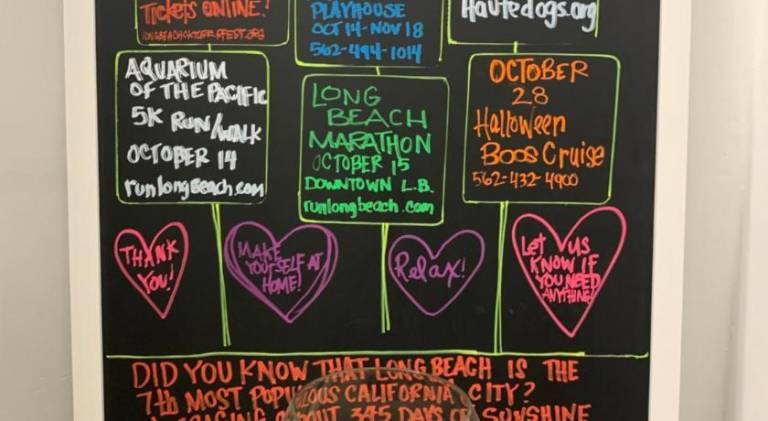 TickeTs ONLINE!
LONGBEACHOKTOBERFEST.ORG
PLAYHOUSE
OCT 14-NOV 18
562-494-1014
Hautedogs.org
AQUARIUM
OF THE PACIFIC
5K RUN/WALK
OCTOBER 14
runlongbeach.com
LONG
BEACH
MARATHON
OCTOBER 15
DOWNTOWN L.B.
runlongbeach.com
OCTOBER
28
Halloween
Boos Cruise
562-432-4900
THANK
YOU!
MAKE
YOURSELF AT
HOME!
Relax!
Let US
KNOW IF
YOU NEED
ANYTHING!
DID YOU KNOW THAT LONG BEACH IS THE
7th MOST POPULOUS CALIFORNIA CITY?
345 DAYS OF SUNSHINE